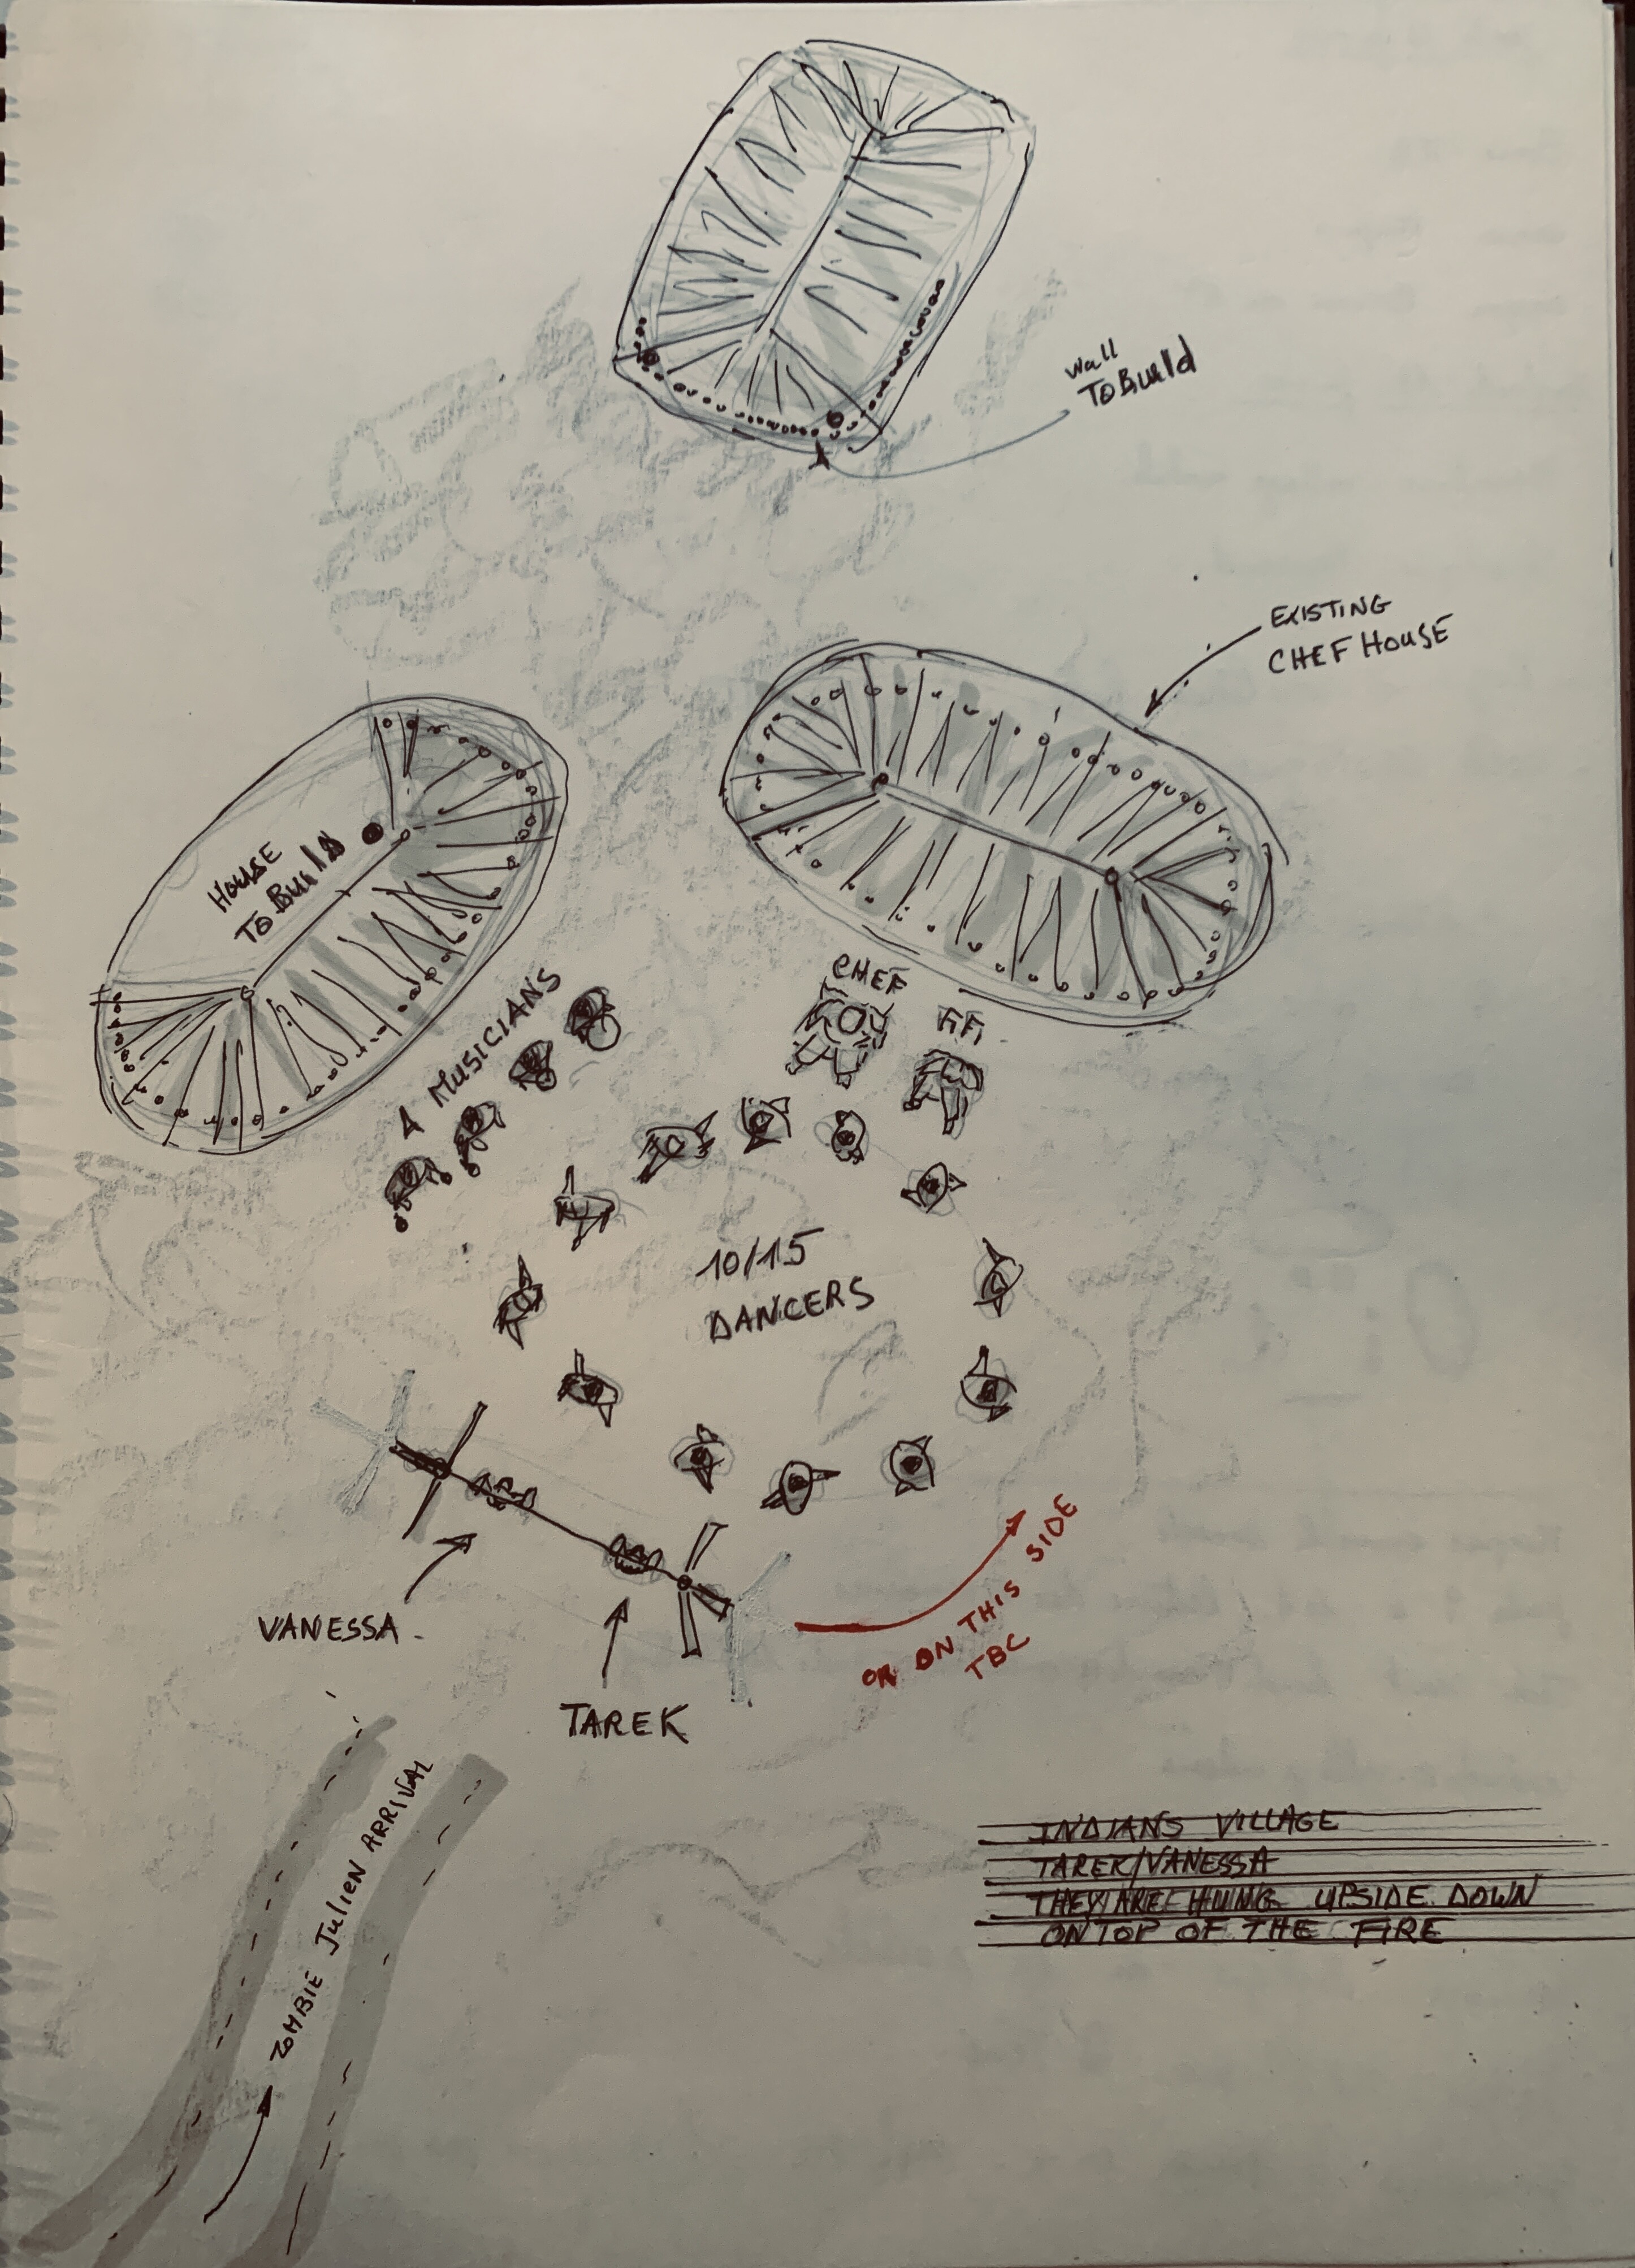 wall
To Build
EXISTING
CHEF HOUSE
HOUSE
To Build
4 MUSICIANS
CHEF
FiFi
10/15
DANCERS
VANESSA
TAREK
OR ON THIS SIDE
TBC
ZOMBIE Julien ARRIVAL
INDIANS VILLAGE
TAREK/VANESSA
THEY ARE HUNG UPSIDE DOWN
ON TOP OF THE FIRE